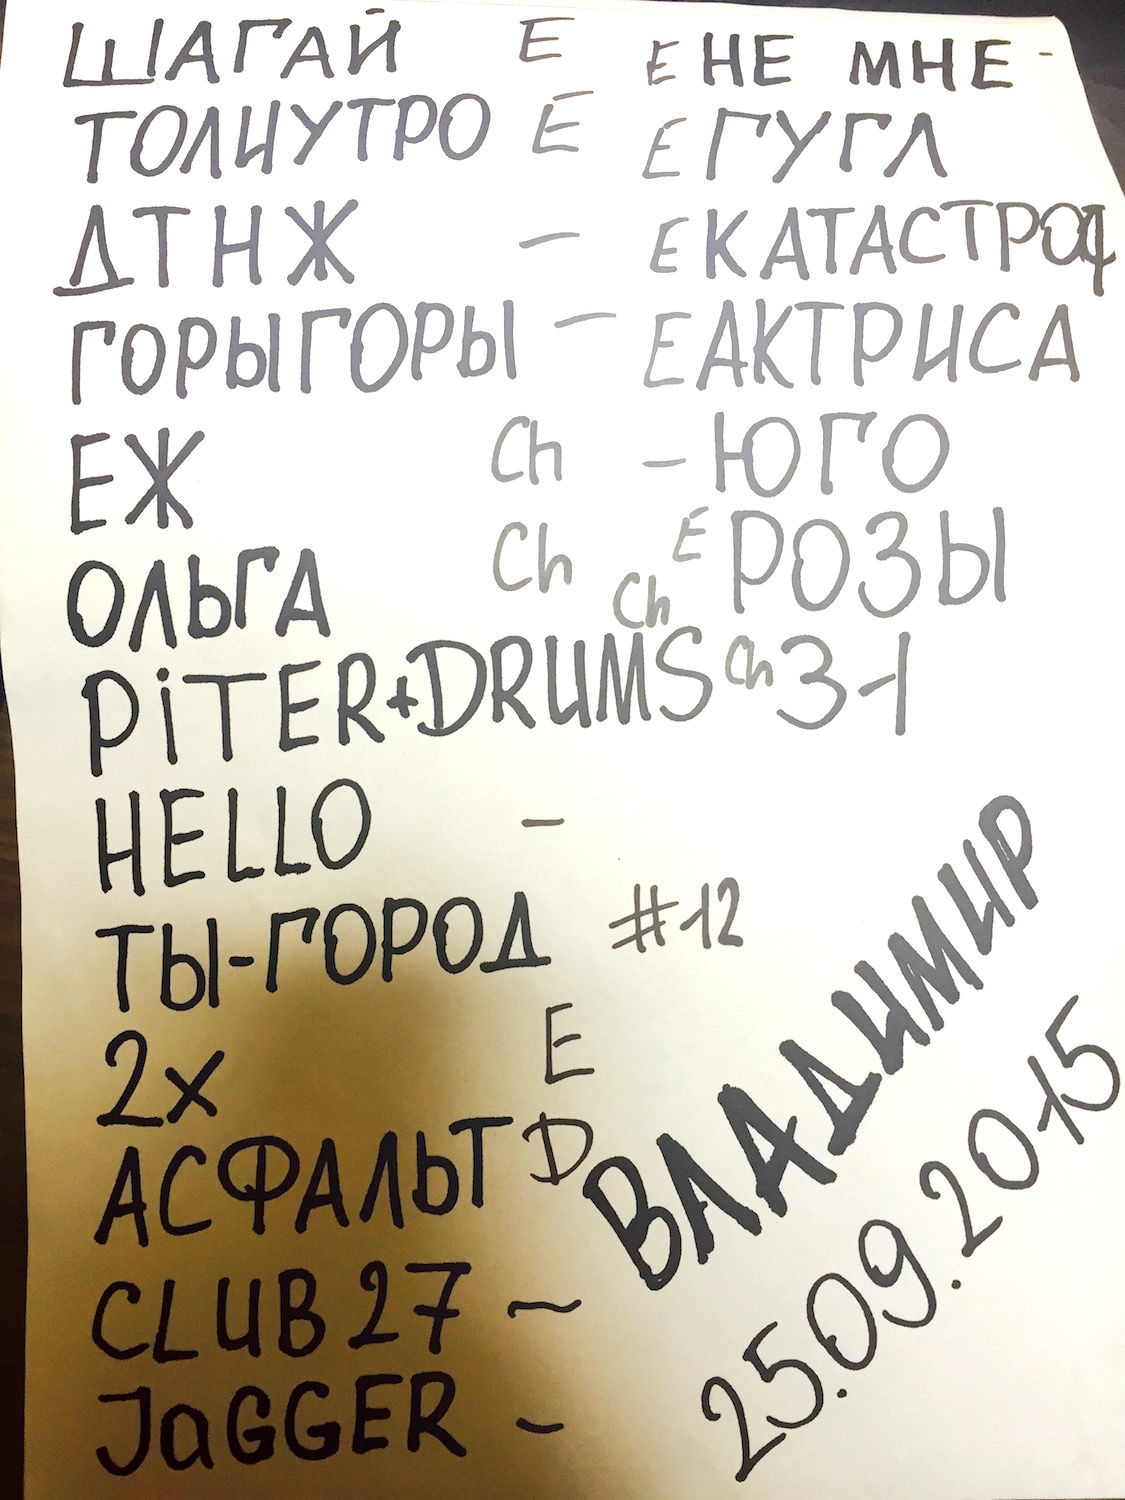 ШАГАЙ E
ТОЛИУТРО E
ДТНЖ —
ГОРЫГОРЫ —
ЕЖ Ch
ОЛЬГА Ch
PiTER+DRUMS Ch
HELLO —
ТЫ-ГОРОД #12
2x E
АСФАЛЬТ D
CLUB 27 ~
JaGGER ~
E НЕ МНЕ -
E ГУГЛ
E КАТАСТРОФ
E АКТРИСА
— ЮГО
E РОЗЫ
Ch 3-1
ВЛАДИМИР
25.09.2015